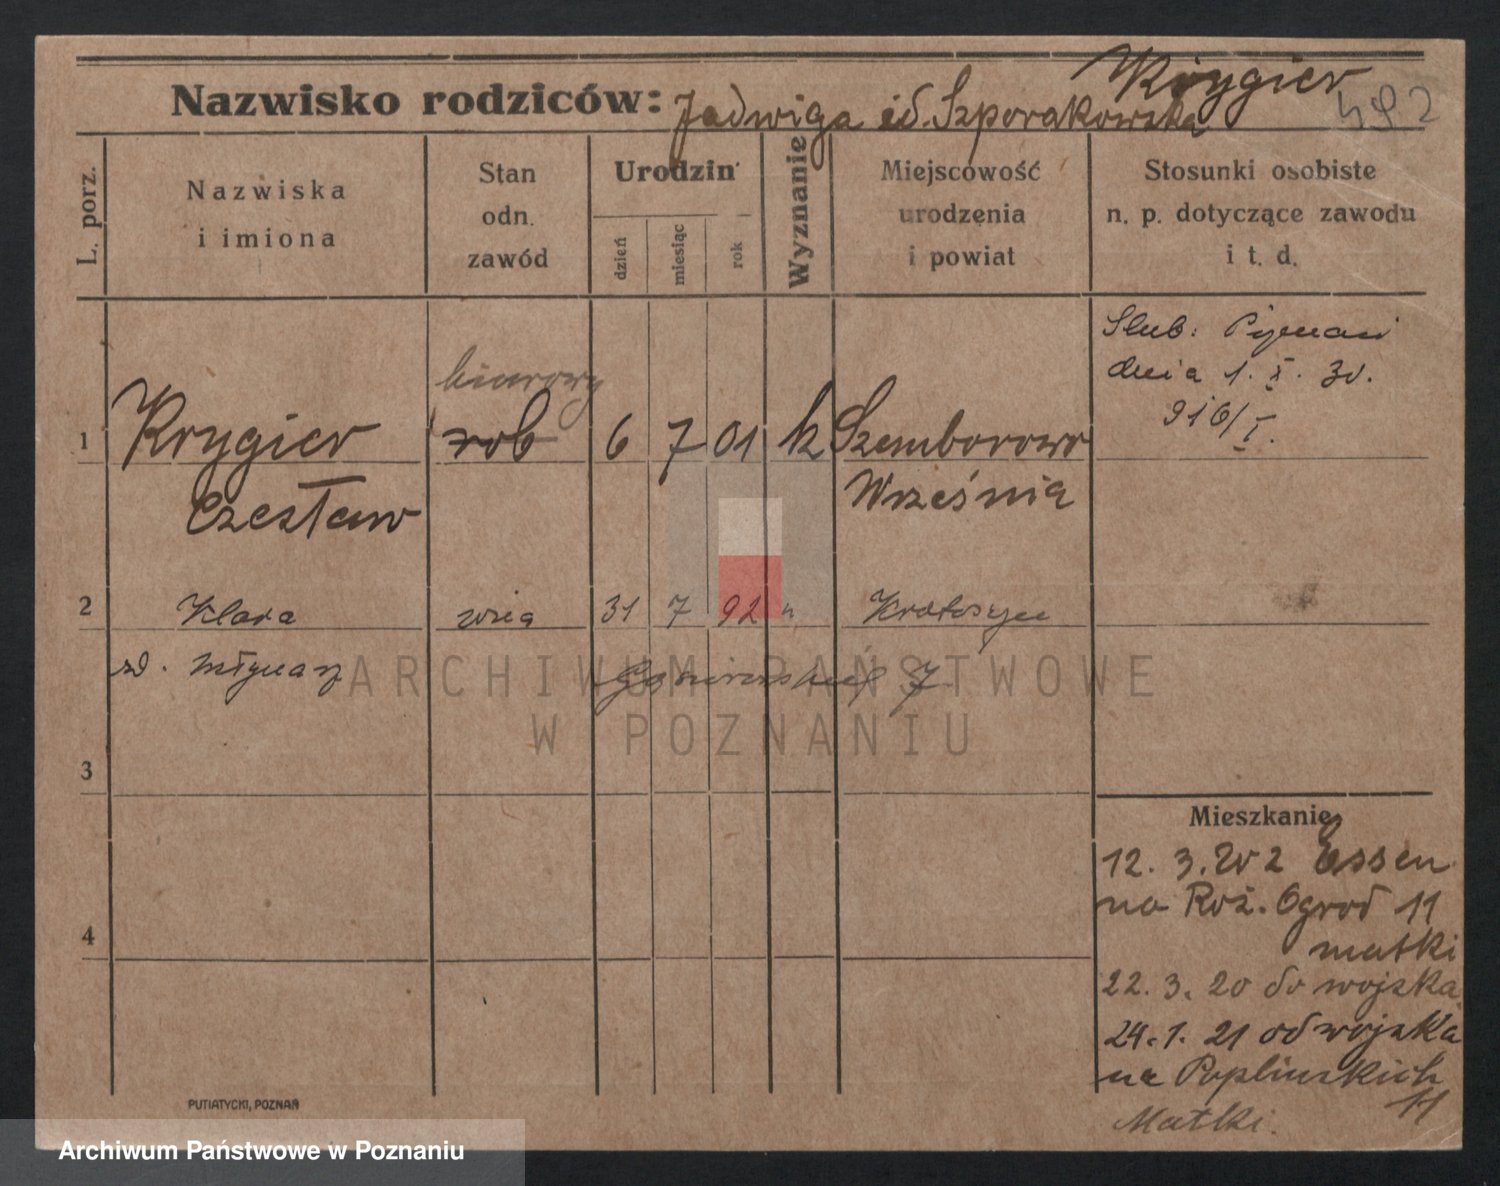 Krygier
Nazwisko rodziców: Jadwiga id. Szporakowska
492
L. porz.
Nazwiska
i imiona
Stan
odn.
zawód
Urodzin
dzień
miesiąc
rok
Wyznanie
Miejscowość
urodzenia
i powiat
Stosunki osobiste
n. p. dotyczące zawodu
i t. d.
Slub:
dnia 1. X. 30.
916/I.
biurowy
1 Krygier rob 6 7 01 k Szemborowo
Czesław Września
2 Klara 31 7 92 Krotoszyn
7
3
Mieszkanie
12. 3. 20 z Essen
na Roż. Ogrod 11
matki
4
22. 3. 20 do wojska
24. 1. 21 od wojska
na Poplinskich
11
Matki.
PUTIATYCKI, POZNAŃ
ARCHIWUM PAŃSTWOWE
W POZNANIU
Archiwum Państwowe w Poznaniu